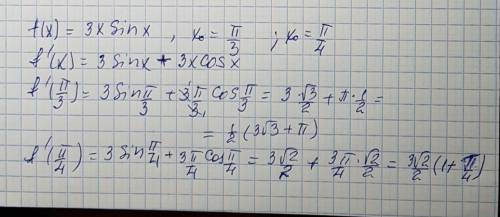 f(x) = 3x Sin x , x₀ = π/3 ; x₀ = π/4
f'(x) = 3 Sin x + 3x Cos x
f'(π/3) = 3 Sin π/3 + 3 π/3 Cos π/3 = 3·√3/2 + π·1/2 =
= 1/2 (3√3 + π)
f'(π/4) = 3 Sin π/4 + 3 π/4 Cos π/4 = 3√2/2 + 3π/4 · √2/2 = 3√2/2 (1 + π/4)